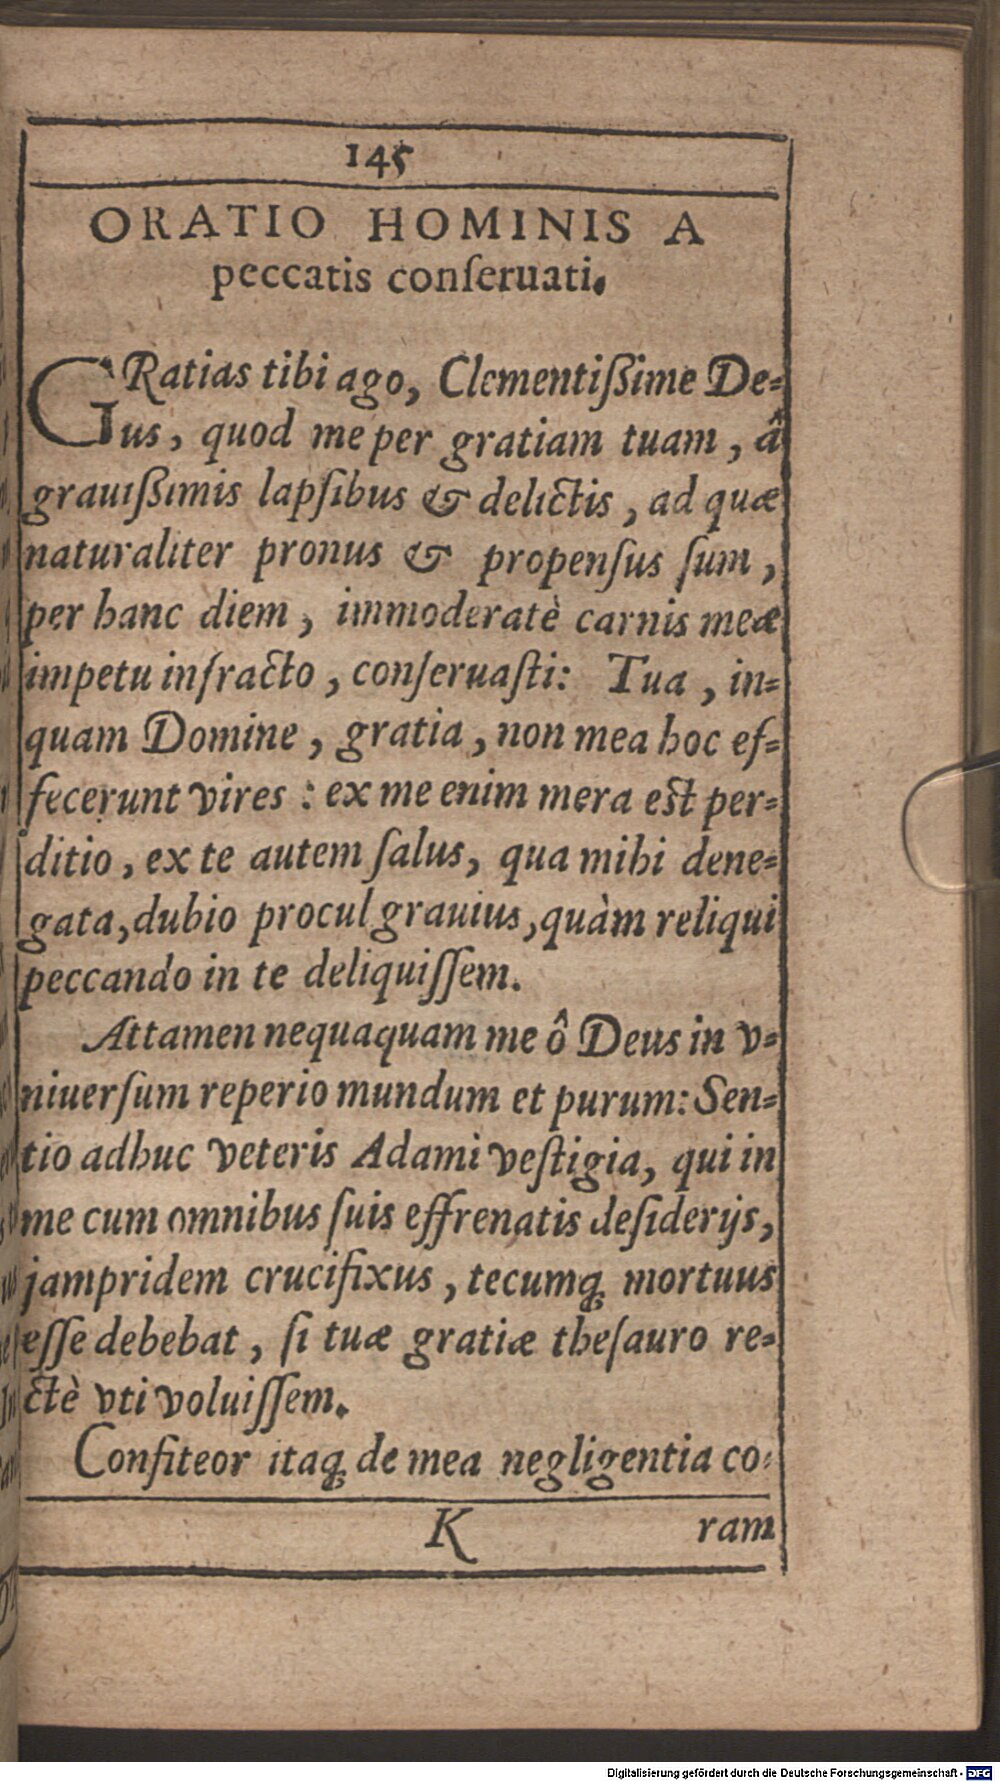 145
ORATIO HOMINIS A
peccatis conſeruati.
GRatias tibi ago, Clementiſſime De-
us, quod me per gratiam tuam, â
grauiſſimis lapſibus & delictis, ad quæ
naturaliter pronus & propenſus ſum,
per hanc diem, immoderatè carnis meæ
impetu infracto, conſeruaſti: Tua, in-
quam Domine, gratia, non mea hoc ef-
fecerunt vires: ex me enim mera est per-
ditio, ex te autem ſalus, qua mihi dene-
gata, dubio procul grauius, quàm reliqui
peccando in te deliquiſſem.
Attamen nequaquam me ô Deus in v-
niuerſum reperio mundum et purum: Sen-
tio adhuc veteris Adami veſtigia, qui in
me cum omnibus ſuis effrenatis deſiderijs,
jampridem crucifixus, tecumq; mortuus
eſſe debebat, ſi tuæ gratiæ theſauro re-
ctè vti voluiſſem.
Confiteor itaq; de mea negligentia co-
K ram
Digitalisierung gefördert durch die Deutsche Forschungsgemeinschaft - DFG